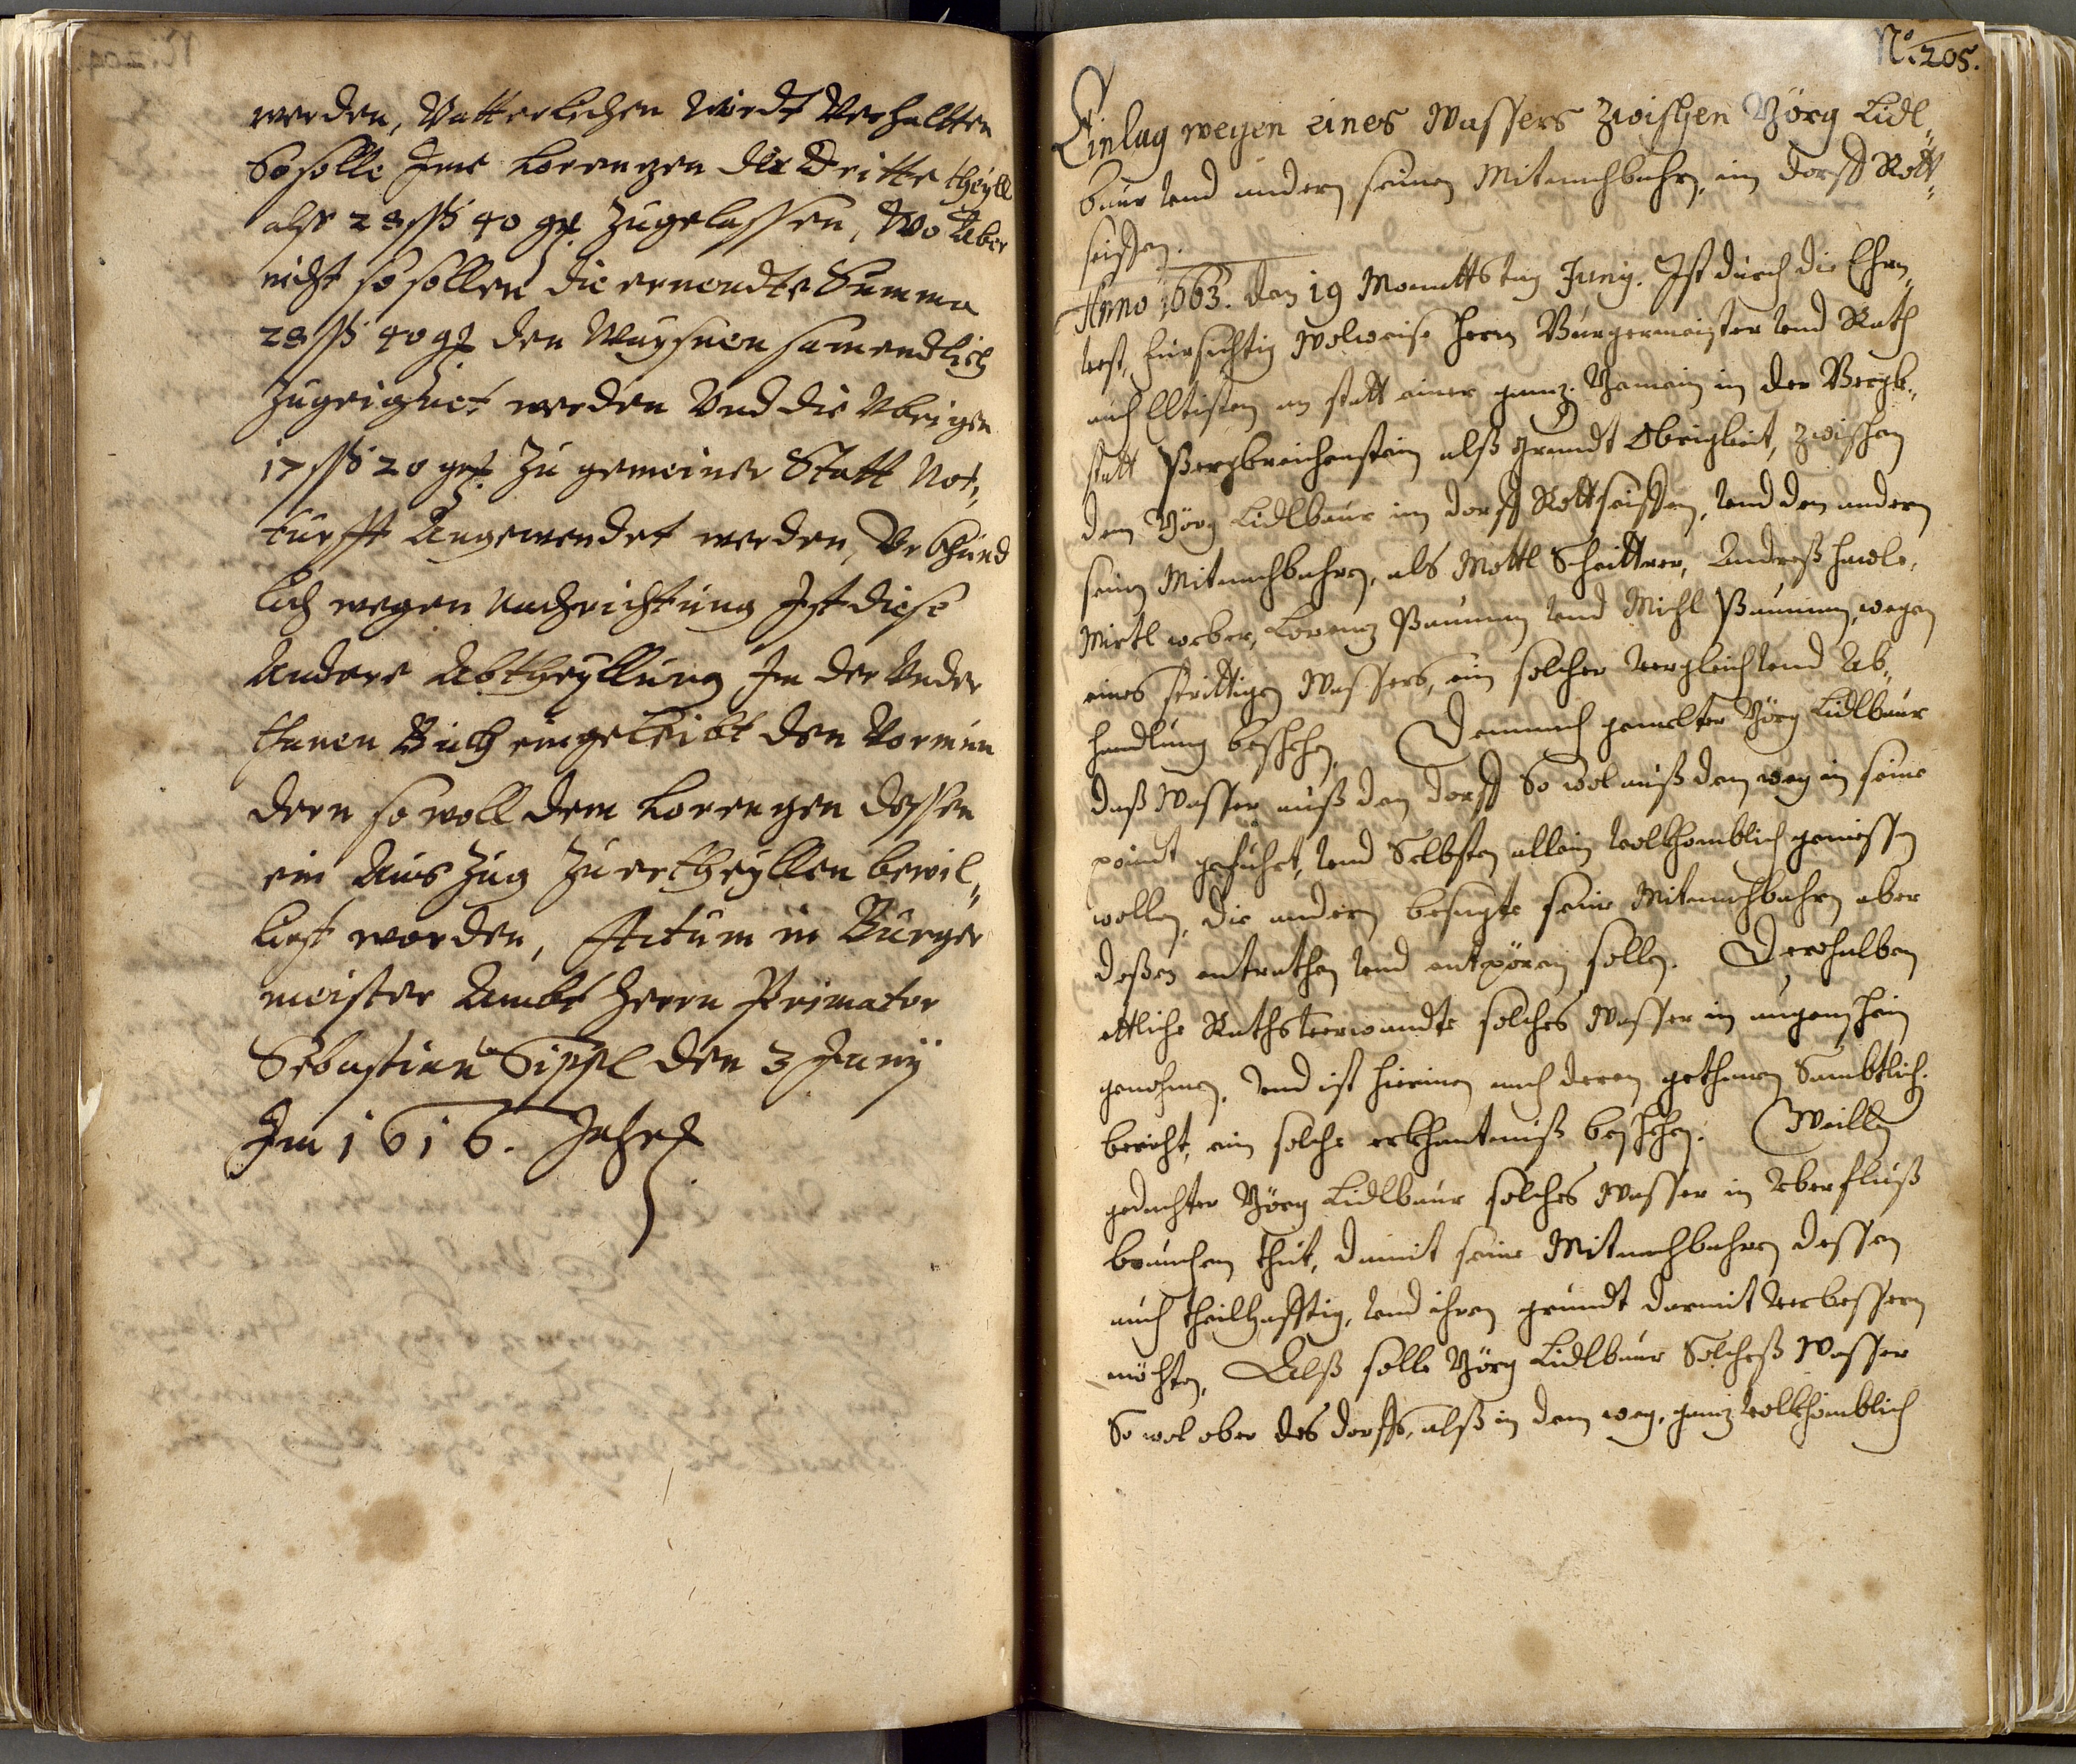 werden, Vatterlichen wirdt Verhaltten
So solle Ime Lorenzen die Dritte theyll
alß 28 ß 40 gr. Zugelassen, Wo Aber
nicht so sollen die ernendte Summa
28 ß 40 gr den Waysnen samendtlich
Zugeignet werden Und die Vbrigen
17 ß 20 gr. Zu gemeiner Statt Not„
turfft Angewendet werden, Vrkhund
lich wegen Nachrichtung Ist diese
Andere Abtheyllung Im der Vnder
thanen Buch eingeleibt den Vormün
dern so woll dem Lorenzen dessen
ein Auszug Zu ertheyllen bewil„
liest worden, Actum in Burger
meister Ambt Herrn Primator
Sebastian Sippl den 3 Juny
Im 1616. Jahr
No. 205.
Einlag wegen eines Wassers zwischen Görg Lidl„
baur vnd andern seinen Mitnachbahrn, im dorff Rott„
seissen.
Anno 1663. den 19 Monattstag Juny. Ist durch die Ehrn„
vest, Fürsichtig Wolweise Herrn Burgermeister vnd Rath
auch Elltisten an statt einer ganz. Gemain in der Bergk„
statt Bergkreichenstein alß Grundt Obrigkeit, zwischen
dem Görg Lidlbaur im dorff Rottseissen, vnd den andern
seinen Mitnachbahren, als Mottl Schrittner, Andreß
Mirtl weber, Lorenz Bauman vnd Michl Bauman, wegen
eines strittigen Wassers, ein solcher vergleich vnd Ab„
handlung beschehen. Demnach gemelter Görg Lidlbaur
daß Wasser auß den dorff So wol auß dem weg in seine
point geführt, vnd Selbsten allein volkhomblich geniessen
wollen, die andern besagte seine Mitnachbahrn aber
deßen entrathen vnd entpören sollen. Derohalben
ettliche Rathsverwandte solches Wasser in augenschein
genohmen, vnd ist hierinnen nach deren gethanen Sambtlich.
bericht, ein solche erkhantnuß beschehen. Weillen
gedachter Görg Lidlbaur solches Wasser in Vberfluß
brauchen thut, damit seine Mitnachbahren dessen
auch theilhafftig, vnd ihren grundt darmit verbessern
möchten. Alß solle Görg Lidlbaur Solcheß Wasser
So wol ober des dorffs, alß in dem weg, ganz volkhomblich